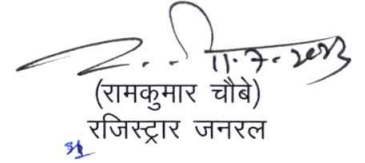 11.7.2023
(रामकुमार चौबे)
रजिस्ट्रार जनरल